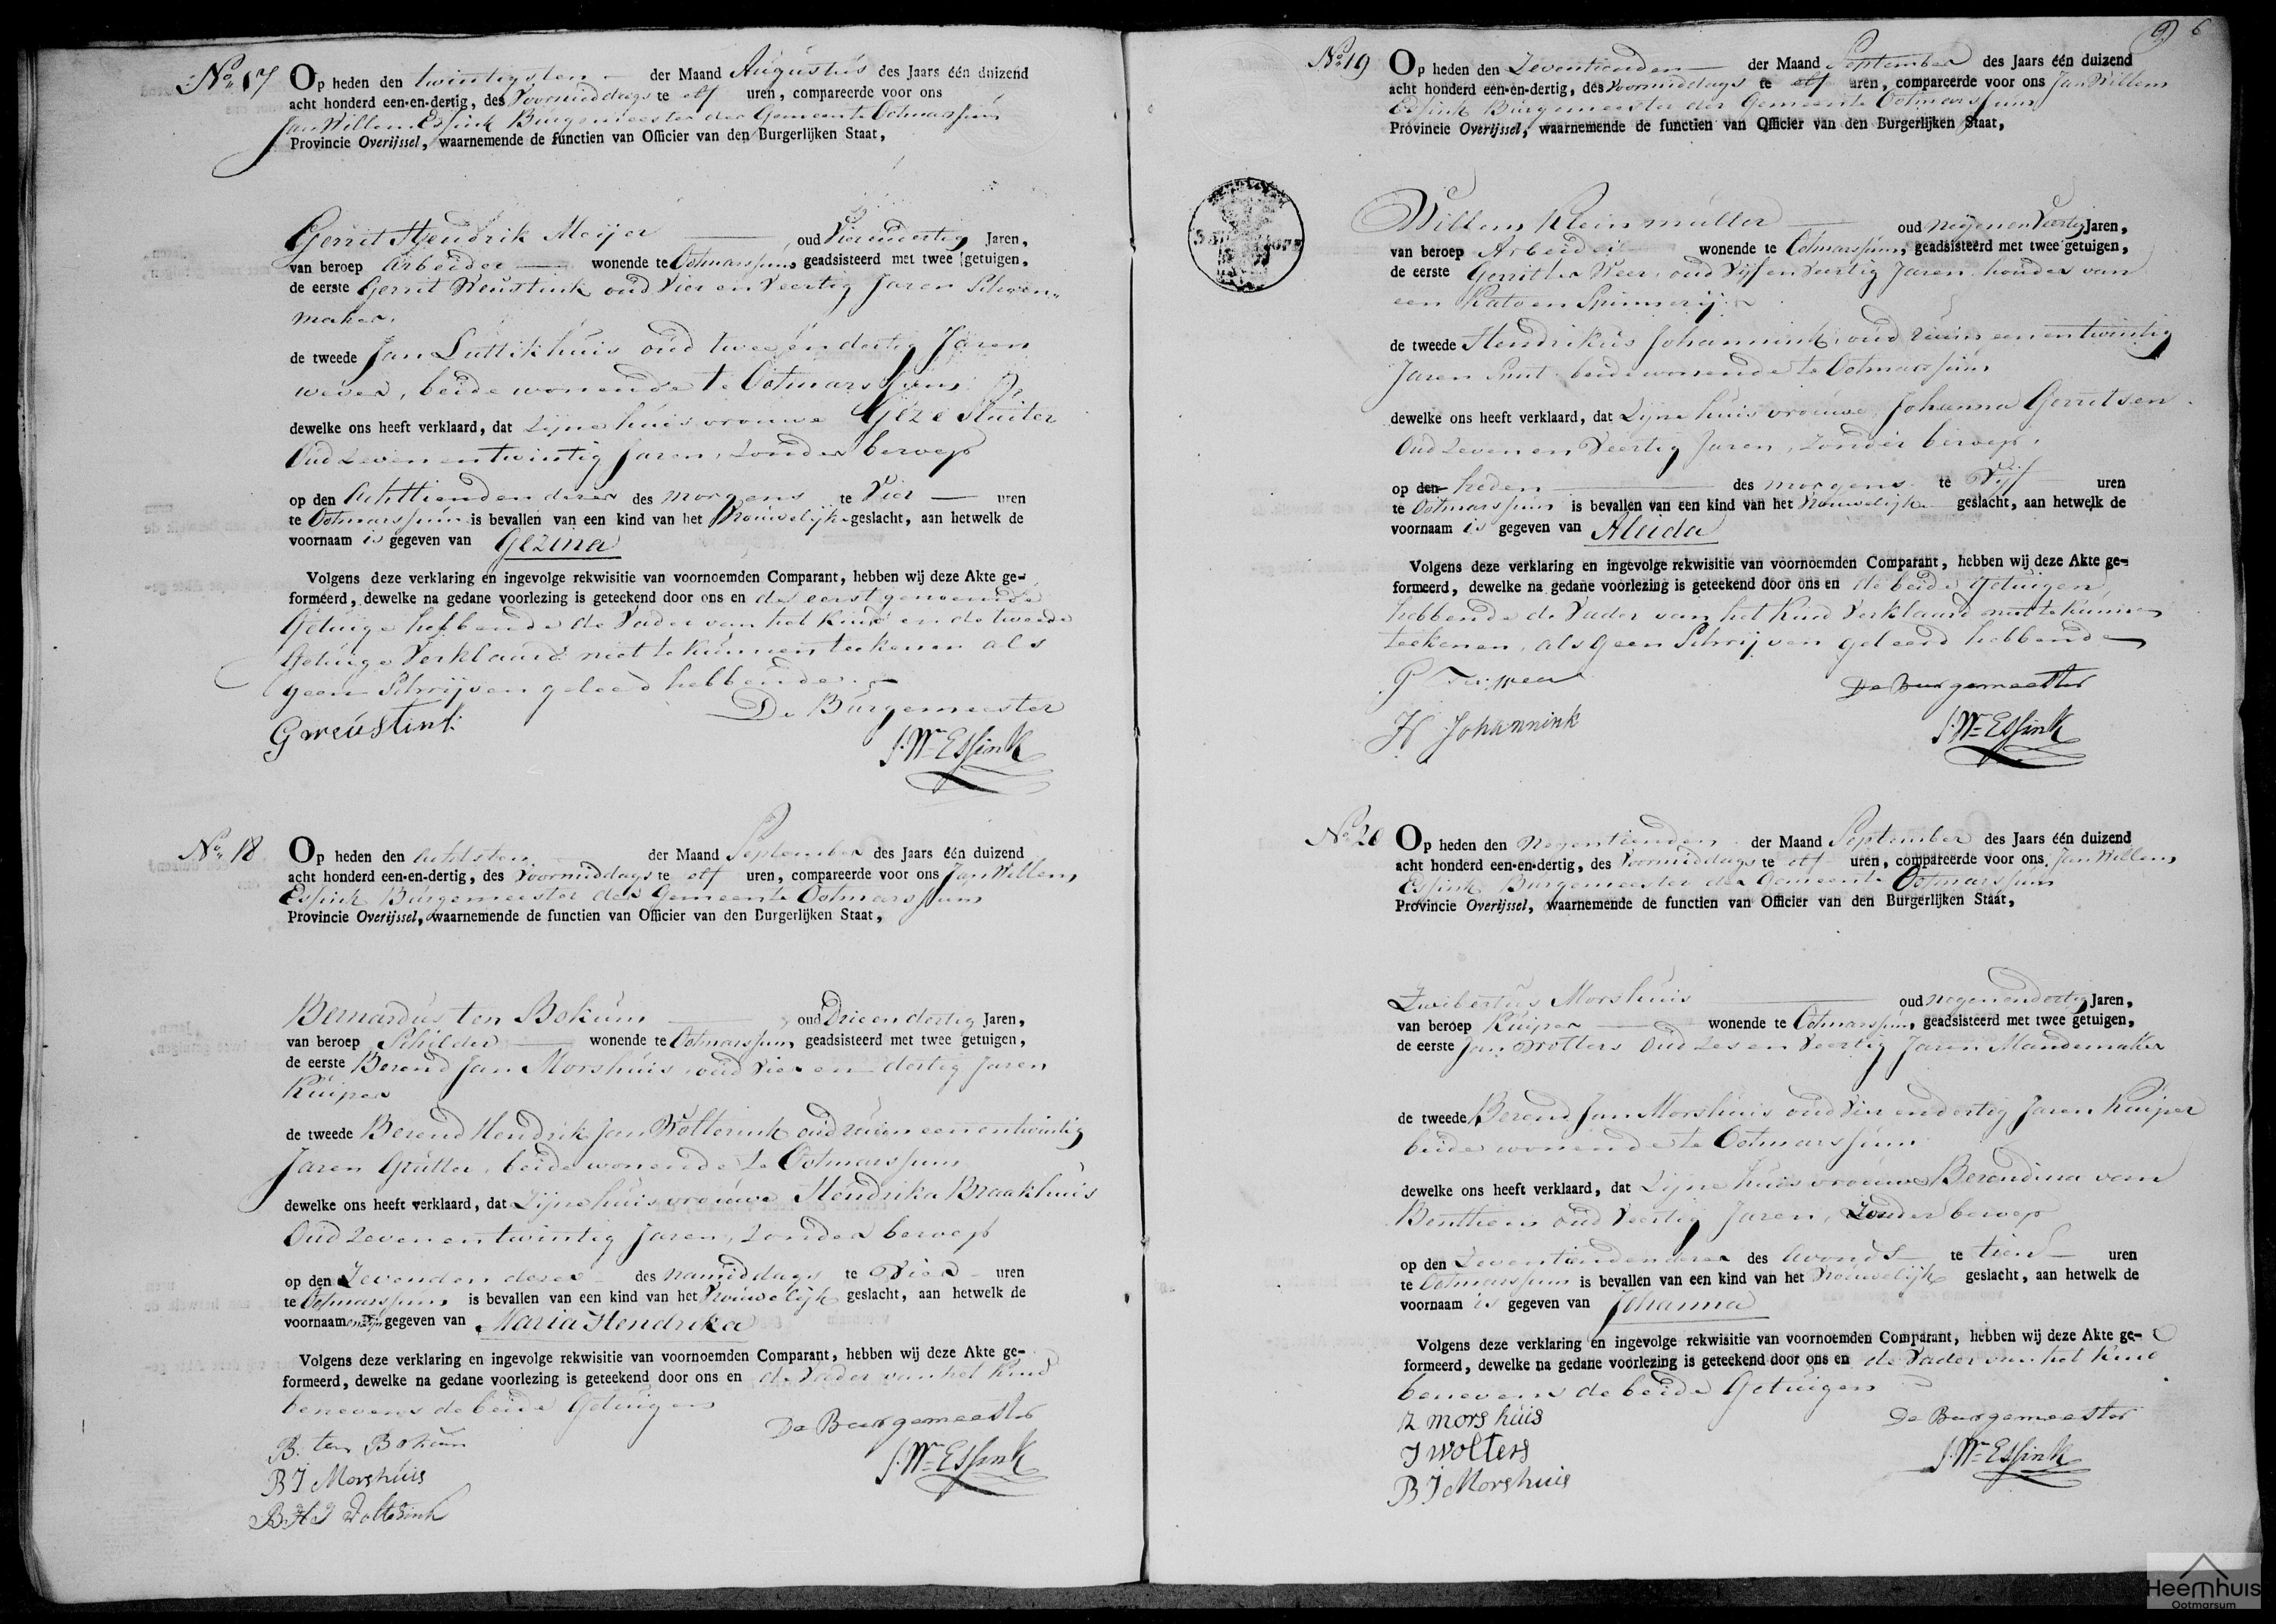 No. 17 Op heden den twintigsten der Maand Augustus des Jaars één duizend
acht honderd een-en-dertig, des Voormiddags te elf uren, compareerde voor ons
Jan Willem Essink Burgemeester der Gemeente Ootmarssum
Provincie Overijssel, waarnemende de functien van Officier van den Burgerlijken Staat,
Gerrit Hendrik Meijer oud Vierendertig Jaren,
van beroep Arbeider wonende te Ootmarssum, geadsisteerd met twee getuigen,
de eerste Gerrit Weustink oud Vier en Veertig Jaren Schoen-
maker.
de tweede Jan Luttikhuis oud twee en dertig Jaren
wever, beide wonende te Ootmarssum
dewelke ons heeft verklaard, dat Zijne huisvrouwe Geze Sluiter
Oud Zeven en twintig Jaren, Zonder beroep
op den Achttienden dezer des morgens te Vier uren
te Ootmarssum is bevallen van een kind van het Vrouwelijk geslacht, aan hetwelk de
voornaam is gegeven van Gezina
Volgens deze verklaring en ingevolge rekwisitie van voornoemden Comparant, hebben wij deze Akte ge-
formeerd, dewelke na gedane voorlezing is geteekend door ons en de eerstgenoemde
Getuige hebbende de Vader van het Kind en de tweede
Getuige Verklaard niet te kunnen teekenen als
geen Schrijven geleerd hebbende.
De Burgemeester
G weustink
J. Wm Essink
No. 18 Op heden den Achtsten der Maand September des Jaars één duizend
acht honderd een-en-dertig, des Voormiddags te elf uren, compareerde voor ons Jan Willem
Essink Burgemeester der Gemeente Ootmarssum
Provincie Overijssel, waarnemende de functien van Officier van den Burgerlijken Staat,
Bernardus ten Bokum oud Drie en dertig Jaren,
van beroep Schilder wonende te Ootmarssum, geadsisteerd met twee getuigen,
de eerste Berend Jan Morshuis, oud Vier en dertig Jaren
Kuiper
de tweede Berend Hendrik Jan Wolterink oud ruim een en twintig
Jaren Grutter, beide wonende te Ootmarssum
dewelke ons heeft verklaard, dat Zijne huisvrouwe Hendrika Braakhuis
Oud Zeven en twintig Jaren, Zonder beroep
op den Zevenden dezer des namiddags te Vier uren
te Ootmarssum is bevallen van een kind van het Vrouwelijk geslacht, aan hetwelk de
voornaam en zijn gegeven van Maria Hendrika
Volgens deze verklaring en ingevolge rekwisitie van voornoemden Comparant, hebben wij deze Akte ge-
formeerd, dewelke na gedane voorlezing is geteekend door ons en de Vader van het Kind
benevens de beide Getuigen
De Burgemeester
B. ten Bokum
J. Wm Essink
B J Morshuis
B. H J Wolterink
9 6
No. 19 Op heden den Zeventienden der Maand September des Jaars één duizend
acht honderd een-en-dertig, des Voormiddags te elf uren, compareerde voor ons Jan Willem
Essink Burgemeester der Gemeente Ootmarssum
Provincie Overijssel, waarnemende de functien van Officier van den Burgerlijken Staat,
Willem Kleinmuller oud Negen en Veertig Jaren,
van beroep Arbeider wonende te Ootmarssum, geadsisteerd met twee getuigen,
de eerste Gerrit ter Weer, oud Vijf en Veertig Jaren houder van
een Katoen Spinnerij
de tweede Hendrikus Johannink, oud ruim een en twintig
Jaren Smit beide wonende te Ootmarssum
dewelke ons heeft verklaard, dat Zijne huisvrouwe Johanna Gerritsen
Oud Zeven en Veertig Jaren, Zonder beroep.
op den heden des morgens te Vijf uren
te Ootmarssum is bevallen van een kind van het Vrouwelijk geslacht, aan hetwelk de
voornaam is gegeven van Aleida
Volgens deze verklaring en ingevolge rekwisitie van voornoemden Comparant, hebben wij deze Akte ge-
formeerd, dewelke na gedane voorlezing is geteekend door ons en de beide Getuigen,
hebbende de Vader van het Kind Verklaard niet te kunnen
teekenen, als geen Schrijven geleerd hebbende
De Burgemeester
H Johannink
J. Wm Essink
No. 20 Op heden den Negentienden der Maand September des Jaars één duizend
acht honderd een-en-dertig, des Voormiddags te elf uren, compareerde voor ons Jan Willem
Essink Burgemeester der Gemeente Ootmarssum
Provincie Overijssel, waarnemende de functien van Officier van den Burgerlijken Staat,
Zwibertus Morshuis oud Negen en dertig Jaren,
van beroep Kuiper wonende te Ootmarssum, geadsisteerd met twee getuigen,
de eerste Jan Wolters Oud Zes en Veertig Jaren Mandemaker
de tweede Berend Jan Morshuis oud Vier en dertig Jaren Kuiper
beide wonende te Ootmarssum
dewelke ons heeft verklaard, dat Zijne huisvrouwe Berendina van
Benthem oud Veertig Jaren, Zonder beroep
op den Zeventienden dezer des Avonds te tien uren
te Ootmarssum is bevallen van een kind van het Vrouwelijk geslacht, aan hetwelk de
voornaam is gegeven van Johanna
Volgens deze verklaring en ingevolge rekwisitie van voornoemden Comparant, hebben wij deze Akte ge-
formeerd, dewelke na gedane voorlezing is geteekend door ons en de Vader van het Kind
benevens de beide Getuigen
Z morshuis
De Burgemeester
J wolters
J. Wm Essink
B J Morshuis
Heemhuis
Ootmarsum